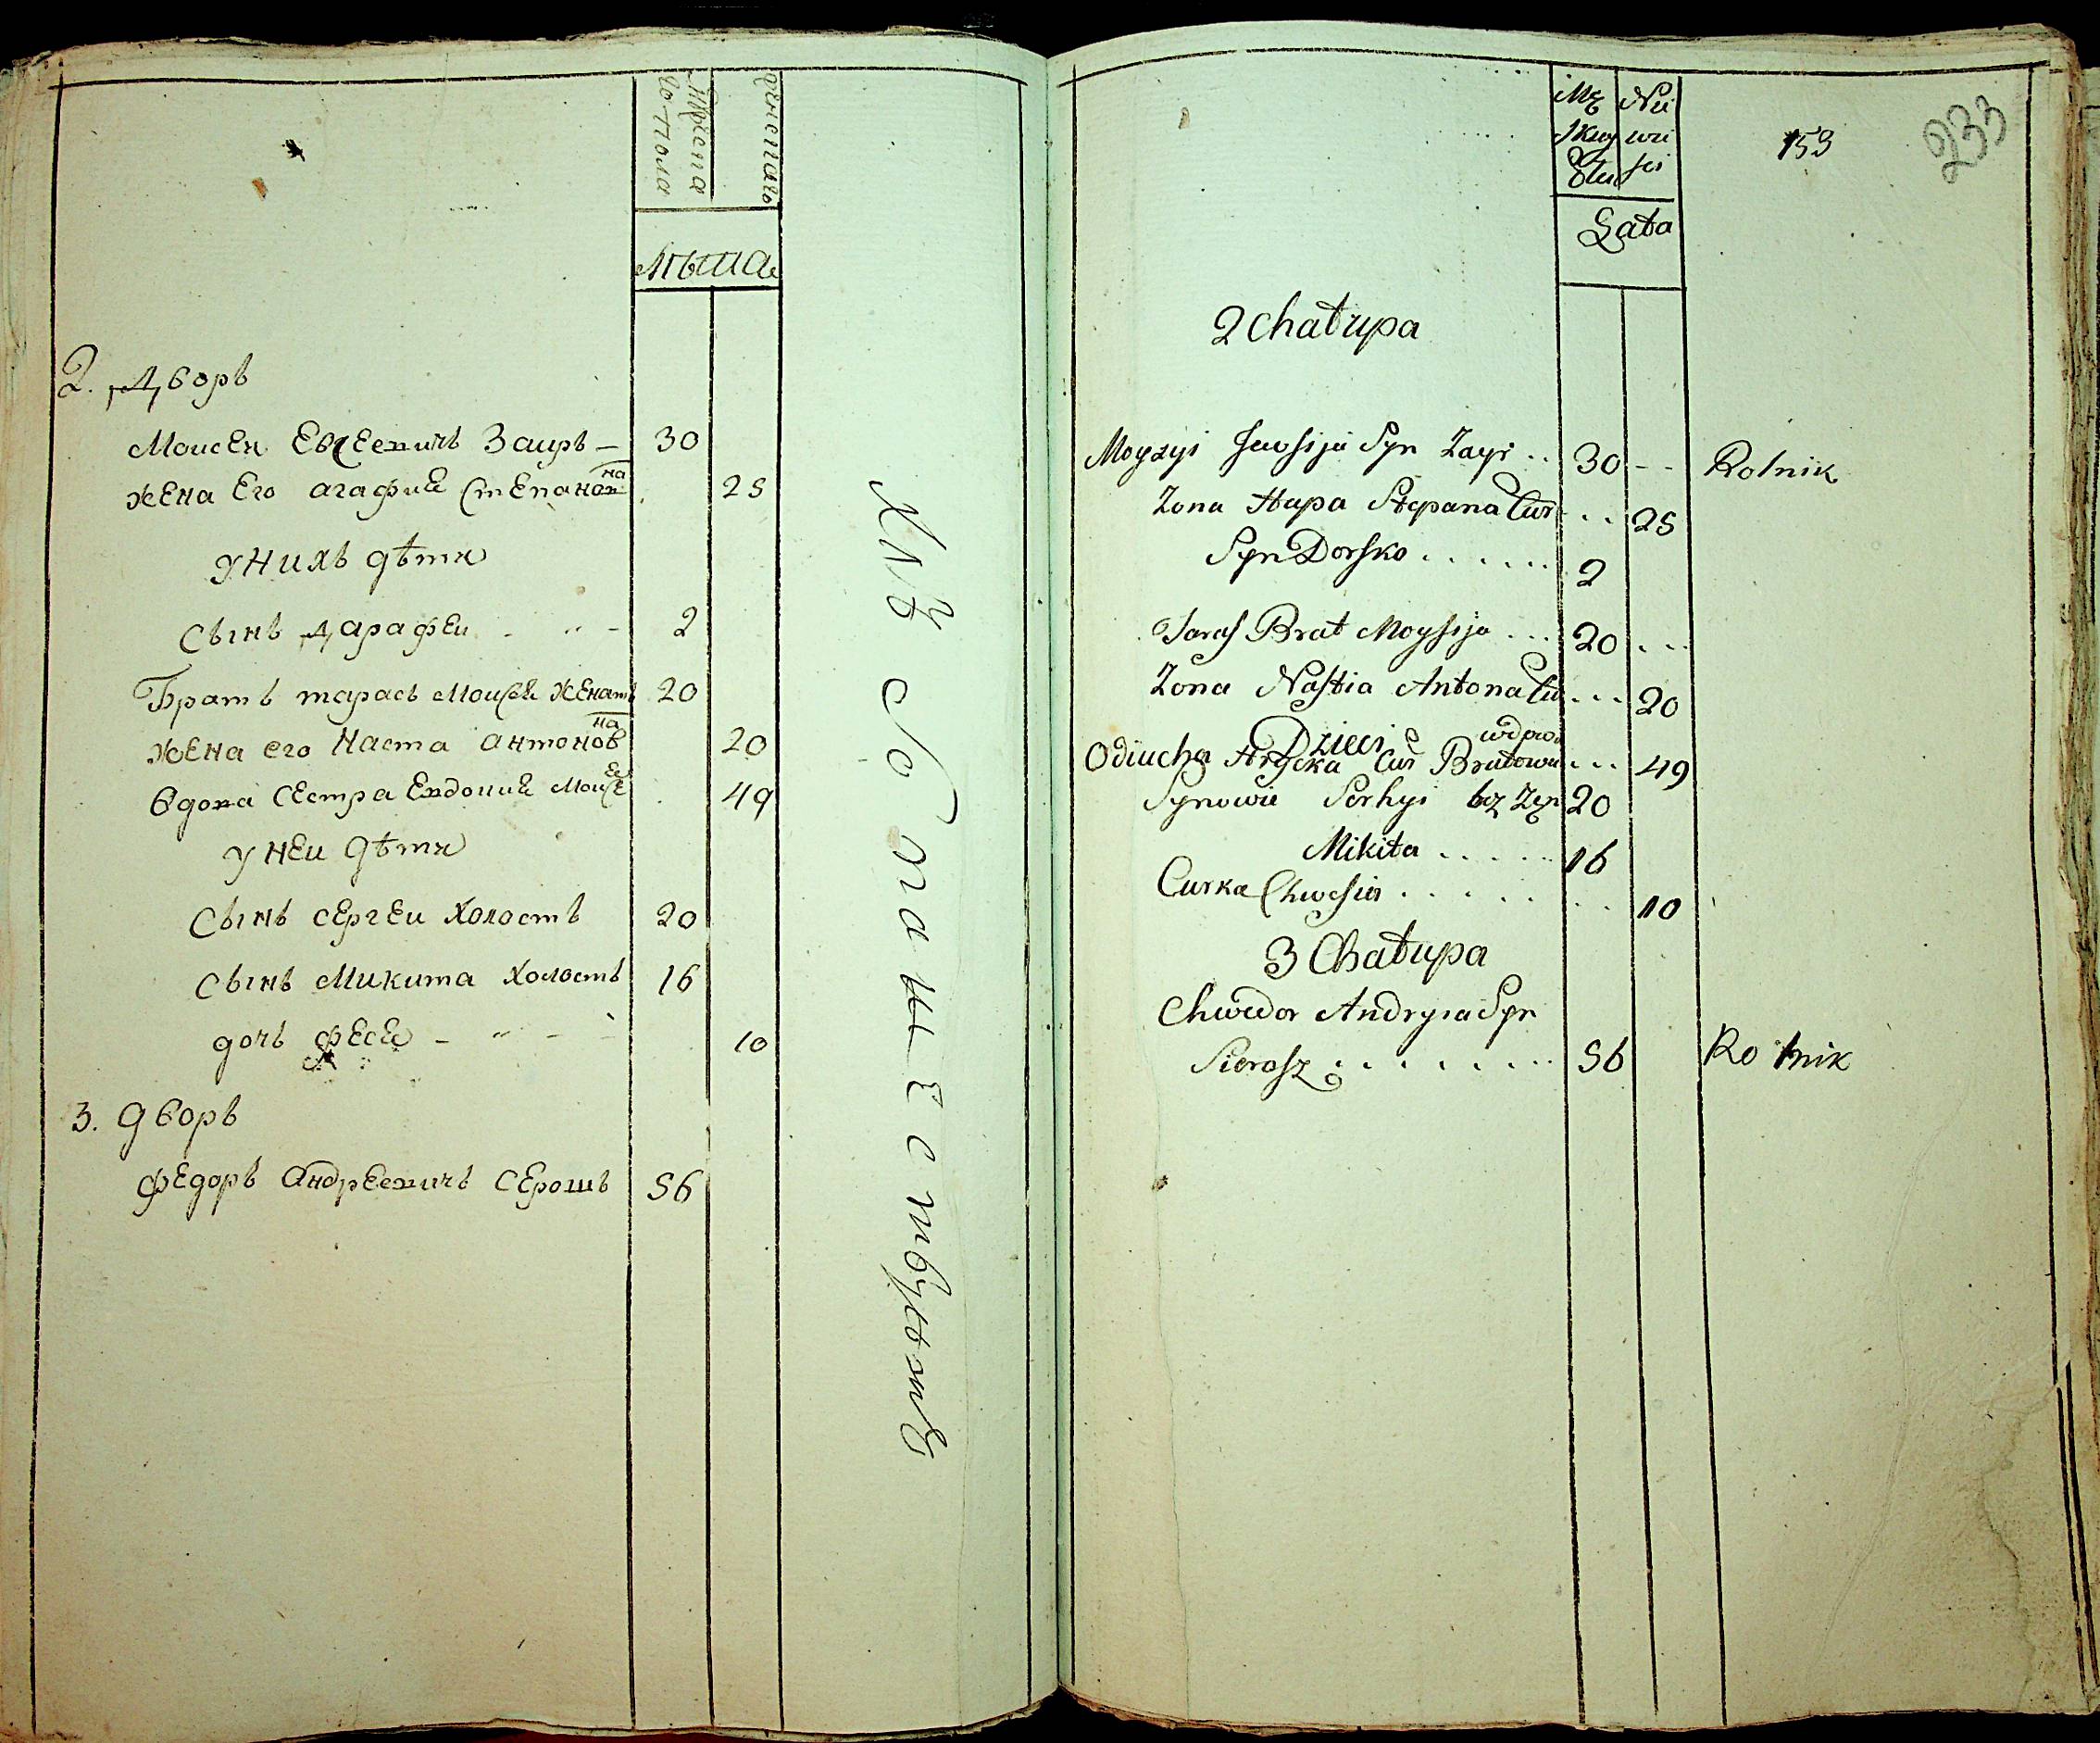 мужеска
го пола
женскаго
Лѣта
2. Дворъ
Моисей Евсеевичъ Заиръ — 30
жена его агафия Степанов на 25
у нихъ дѣти
сынъ Дарафеи 2
Братъ тарасъ Моисея женатъ 20
жена его Наста антонов на 20
вдова сестра Евдокия Моисе ев 49
у неи дѣти
сынъ сергеи холостъ 20
сынъ Микита холостъ 16
дочь феся 10
3. дворъ
федоръ андреевичъ серошъ 56
хлѣбопашествуетъ
Mę Nie
skiey wie
Płci sci
Lata
153
233
2 Chałupa
Moyzyi Jewsija Syn Zayr .. 30 - - Rolnik
Zona Hapa Stepana Cur .. 25
Syn Dorsko ...... 2
Taras Brat Moysija ... 20 ...
Zona Nastia Antona Cu ... 20
Dzieci wdowa
Odiucha Hrycka Cur Bratowa ... 49
Synowie Serhyi bez żen 20
Mikita ..... 16
Curka Chwesia ..... .. 10
3 Chałupa
Chwedor Andryia Syn
Sierosz ........ 56 Rolnik